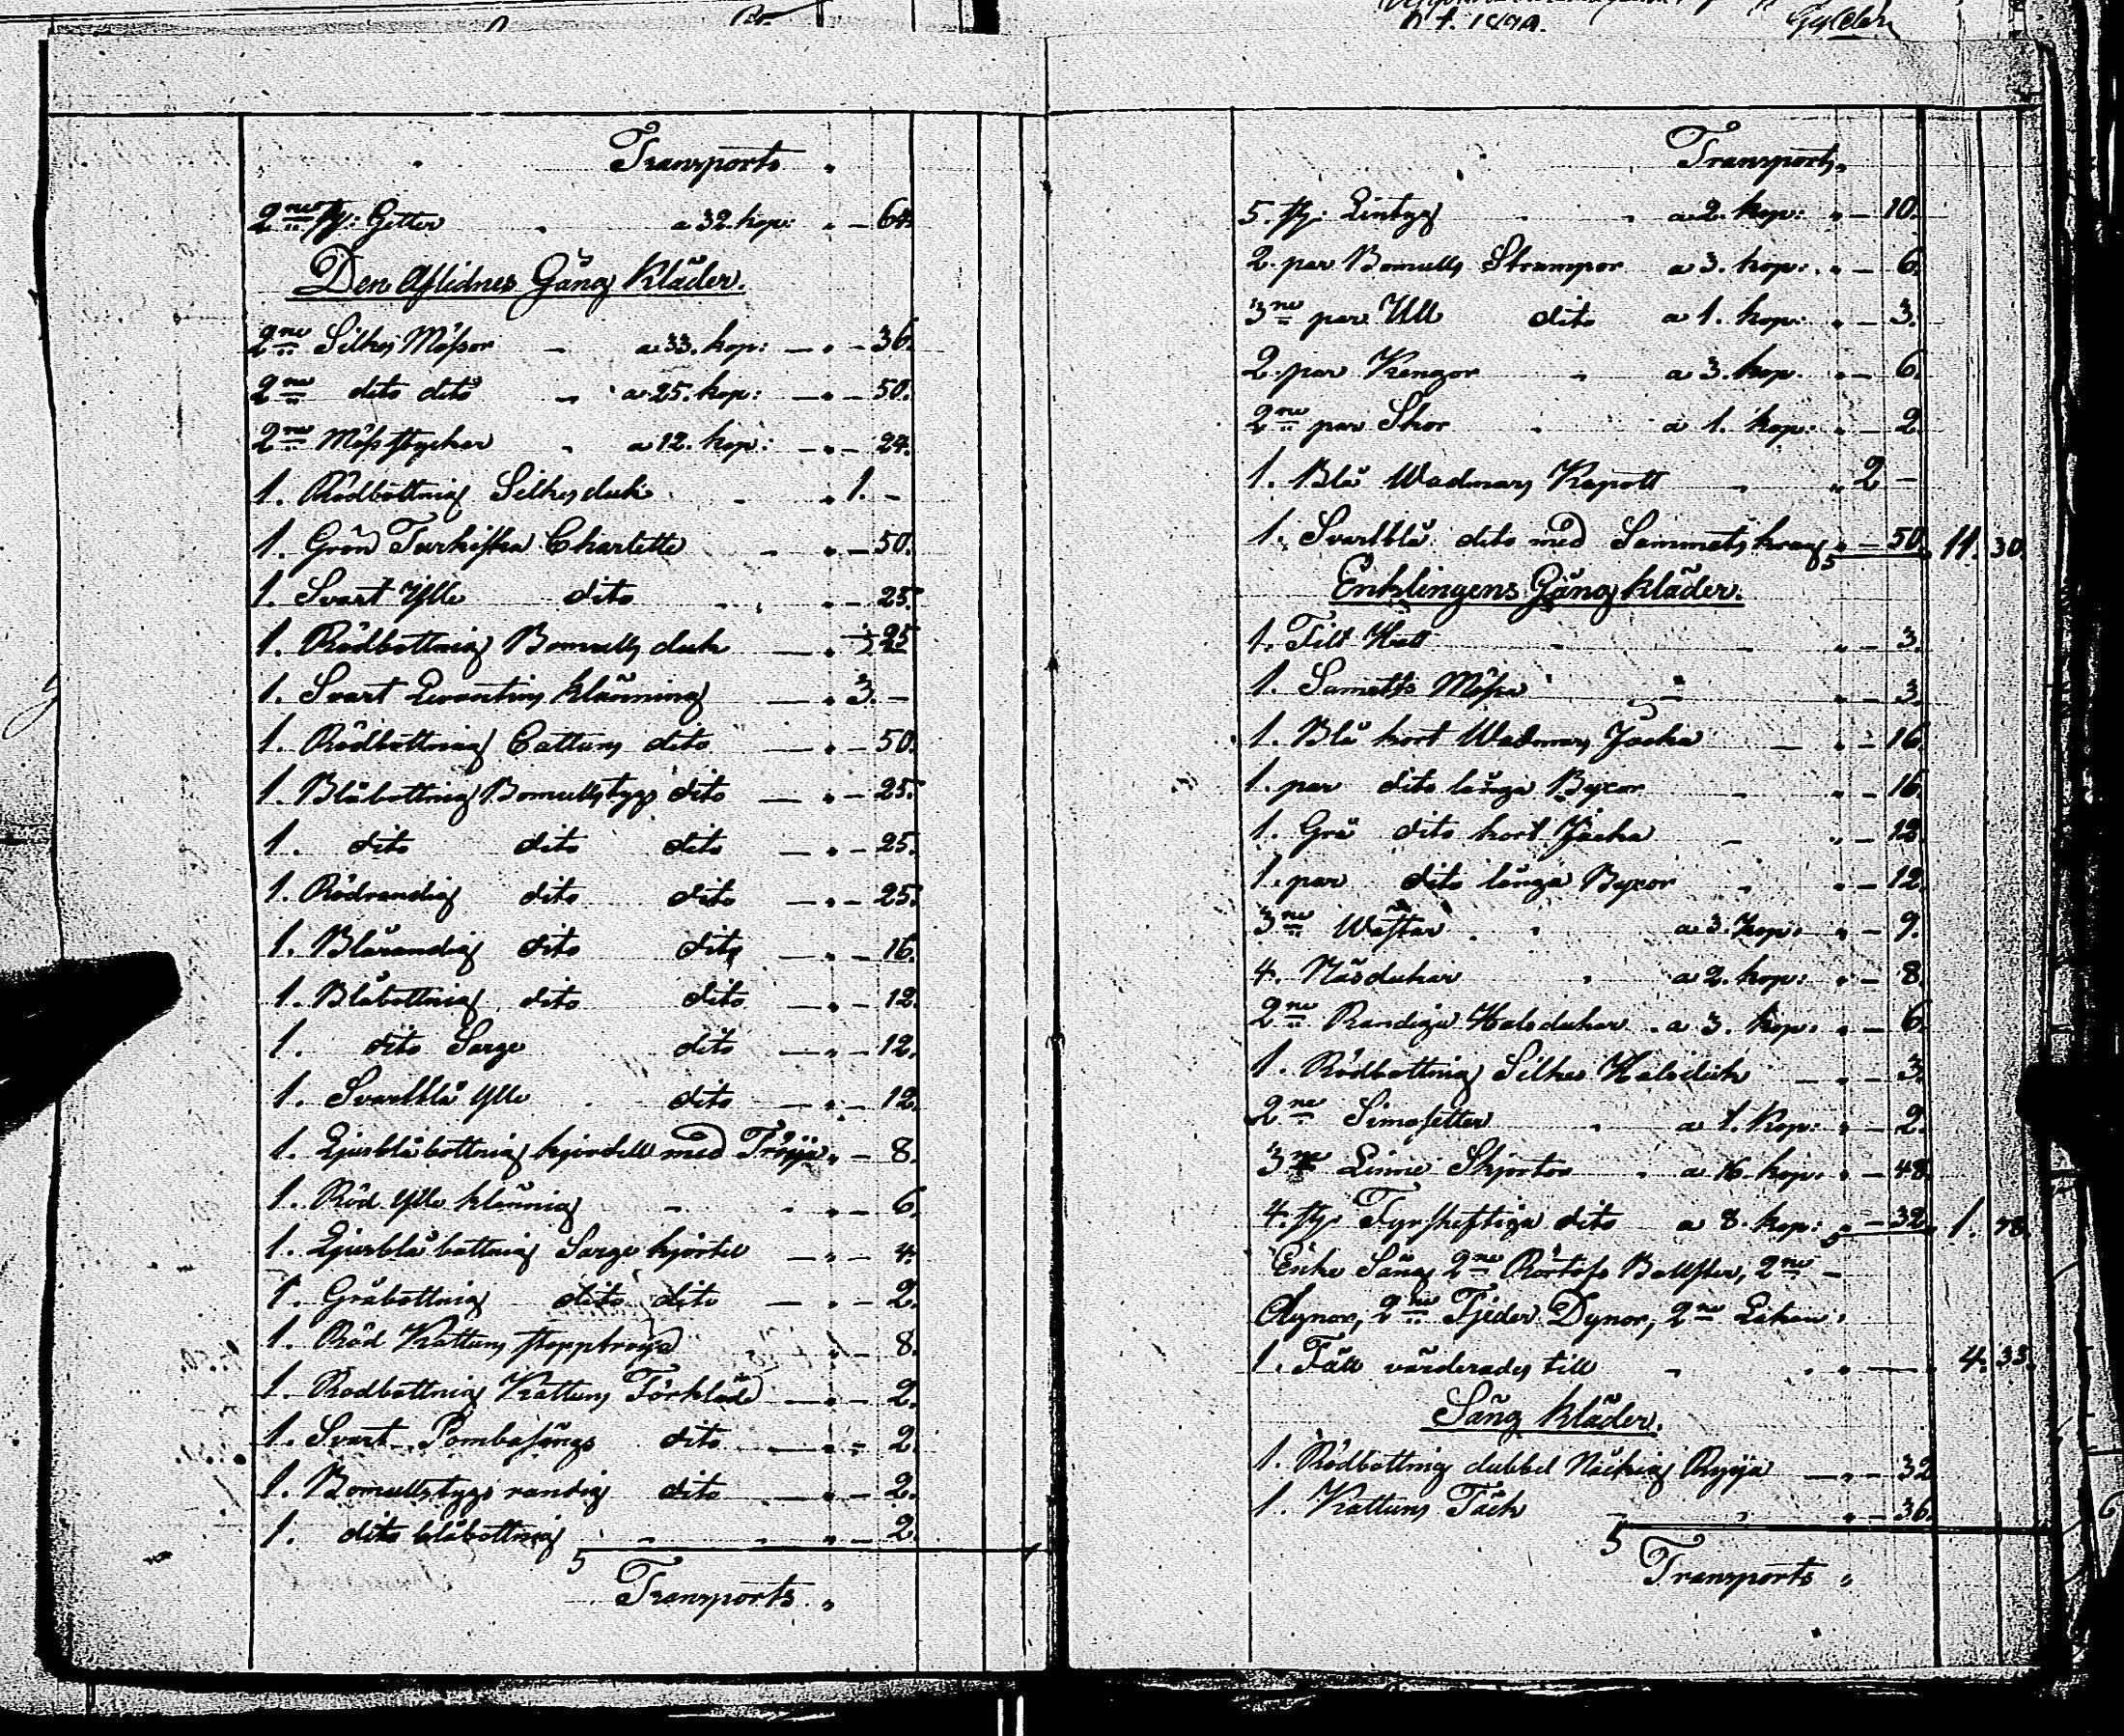 Transports „
2ne st: Getter „ a 32. kop: „ – 64.
Den Aflidnes Gång Kläder.
2ne Silkes Mössor – a 33. kop: – „ – 36.
2ne dito dito – a 25. kop: – „ – 50.
2ne Möss stycker „ a 12. kop: – „ – 24.
1. Rödbottnig Silkes duk „ „ 1. –
1. Grön Turkiska Charlette – „ – 50.
1. Svart Ylle dito „ „ – 25.
1. Rödbottnig Bomulls duk – „ – 25
1. Svart Levantins klänning – „ 3. –
1. Rödbottnig Cattuns dito – „ – 50.
1. Blåbottnig Bomullstygs dito – „ – 25.
1. dito dito dito – „ – 25.
1. Rödrandig dito dito – „ – 25.
1. Blårandig dito dito – „ – 16.
1. Blåbottnig dito dito – „ – 12.
1. dito Sarge dito – „ – 12.
1. Svartblå Ylle dito – „ – 12.
1. Ljusblåbottnig kjortell med Tröja „ – 8.
1. Röd Ylle klännig – „ – 6.
1. Ljusblåbottnig Sarge kjortel – „ – 4.
1. Gråbottnig dito dito – „ – 2.
1. Röd Kattuns stopptröya „ – 8.
1. Rodbottnig Kattuns Förkläde – „ – 2.
1. Svart Bombasångs dito – „ – 2.
1. Bomullstygs randig dito – „ – 2.
1. dito blåbottnig „ „ „ – 2.
Transports „
n f. 1 Gyldén
Transports „
5. st: Lintyg „ „ a 2. kop: „ – 10.
2. par Bomulls Strumpor a 3. kop: „ – 6.
3ne par Ull dito a 1. kop: „ – 3.
2. par Kengor „ a 3. kop. „ – 6.
2ne par Skor „ a 1. kop: „ – 2.
1. Blå Wadmars Kapott „ „ 2 –
1. Svartblå dito med Sammets krag „ – 50. 11. 30.
Enklingens Gång kläder.
1. Filt Hatt – „ „ – 3.
1. Samets Mössa – „ – 3.
1. Blå kort Wadmars Jacka – „ – 16.
1. par dito långa Byxor – „ – 16.
1. Grå dito kort Jacka – „ – 12.
1. par dito långa Byxor „ „ – 12.
3ne Wästar „ a 3. kop. „ – 9.
4. Näsdukar „ a 2. kop: „ – 8.
2ne Randiga Halsdukar „ a 3. kop. „ – 6.
1. Rödbottnig Silkes Halsduk – „ – 3.
2ne Simasetter „ a 1. Kop: „ – 2.
3ne Linne Skjortor „ a 16. kop. „ – 48.
4. st: Fyrskeftiga dito a 8. kop: „ – 32. 1.
Enke Säng 2ne Bollster, 2ne –
Dynor, 2ne Fjeder Dynor, 2ne Lakan,
1. Fäll värderades till „ „ „ – 4. 33.
Säng kläder.
1. Rödbottnig dubbel Näckig Ryya – „ – 32
1. Kattuns Täck „ „ – 36.
Transports „